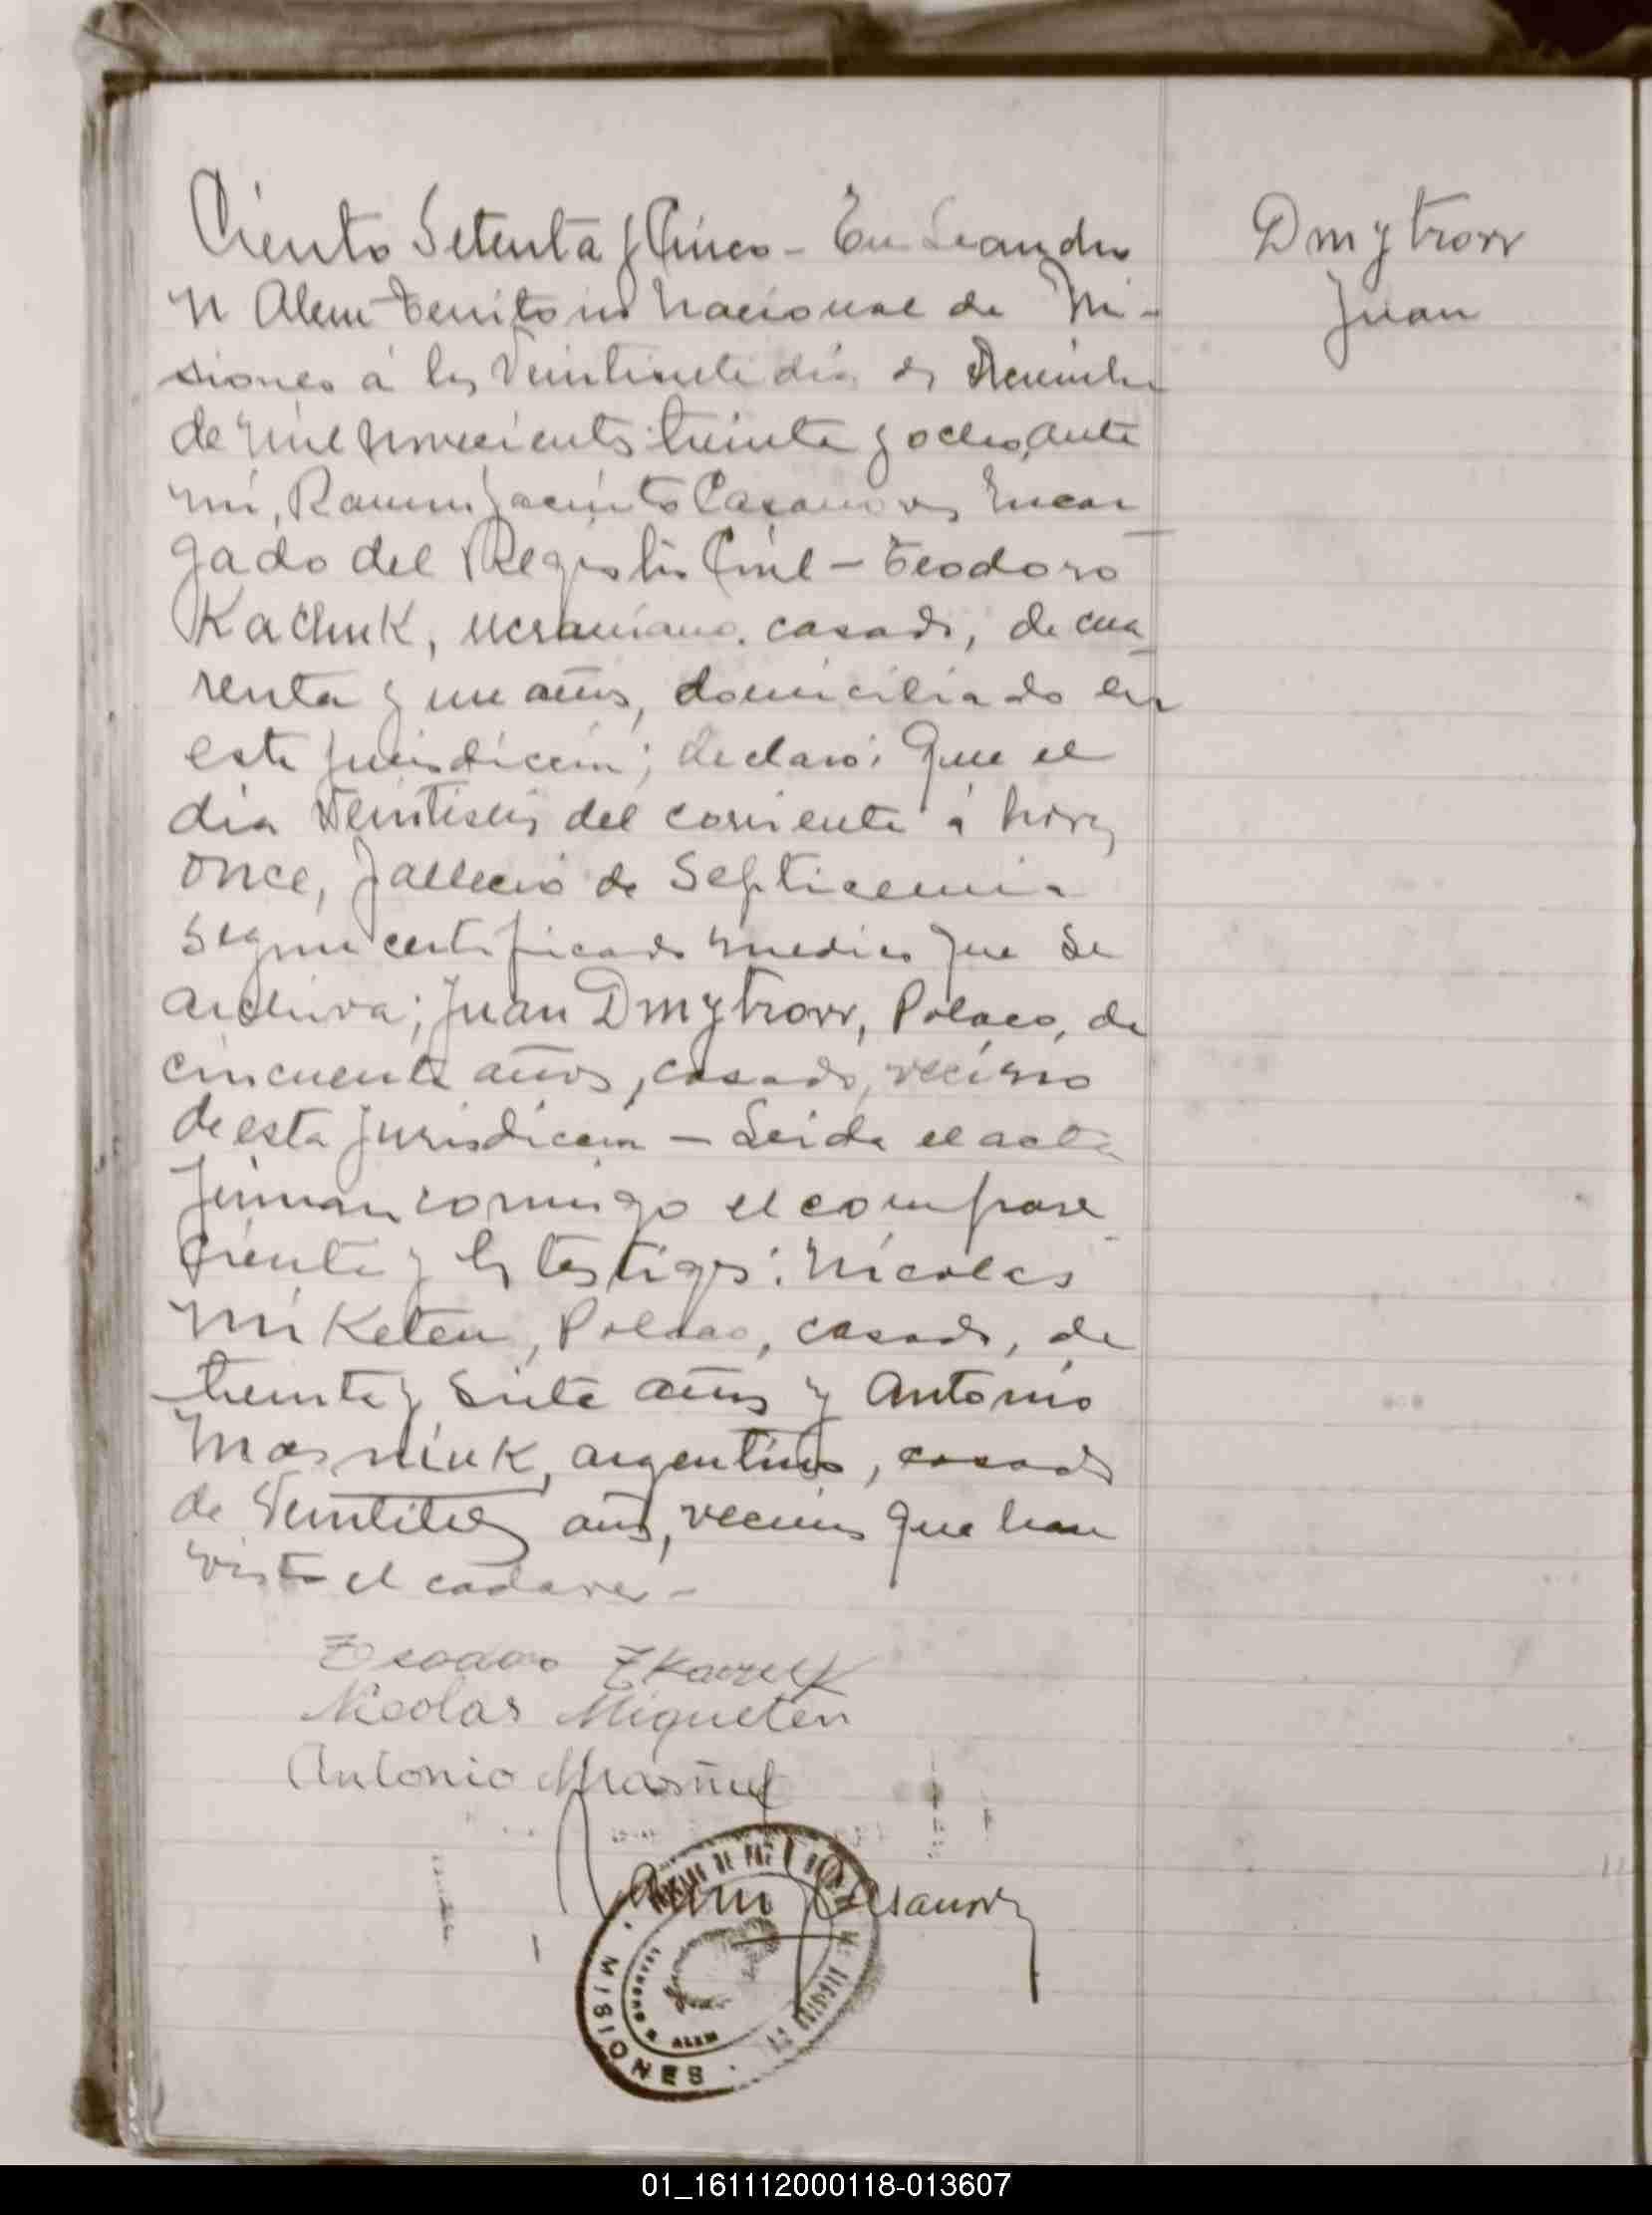 Ciento Setenta y Cinco - En Leandro
Dmytrow
N Alem - Territorio Nacional de Mi-
Juan
siones á los Veintisiete dia de Diciembre
de mil novecientos treinta y ocho, ante
mi, Ramon Jacinto Casanova, Encar
gado del Registro Civil - Teodoro
Kachuk, ucraniano, casado, de cua
renta y un años, domiciliado en
esta jurisdiccion; declaró: Que el
dia Veintiseis del corriente á horas
once, falleció de Septicemia
segun certificado medico que se
archiva; Juan Dmytrow, Polaco, de
cincuenta años, casado, vecino
de esta jurisdiccion - Leida el acta
firman conmigo el compare
ciente y los testigos: Nicolas
Miketen, Polaco, casado, de
treinta y siete años y Antonio
Masniuk, argentino, casado
de Veintitres años, vecinos que han
visto el cadaver -
Teodoro Tkaczuk
Nicolas Miqueten
Antonio Masñuk
Casanova
JUZGADO DE PAZ
MISIONES
LEANDRO N. ALEM
01_161112000118-013607